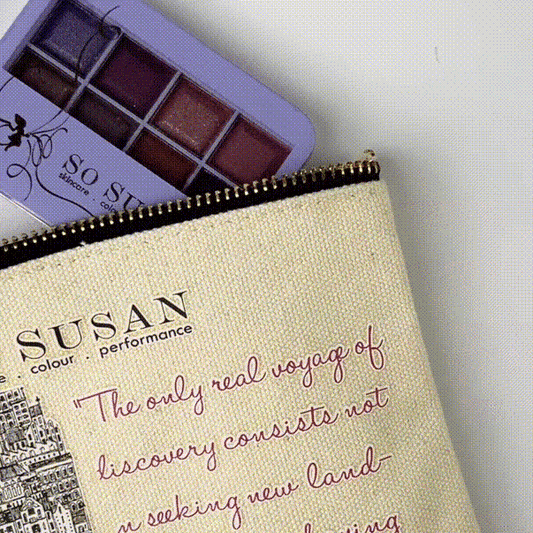 SO SU
skincare . co
SUSAN
e . colour . performance
"The only real voyage of
discovery consists not
n seeking new land-